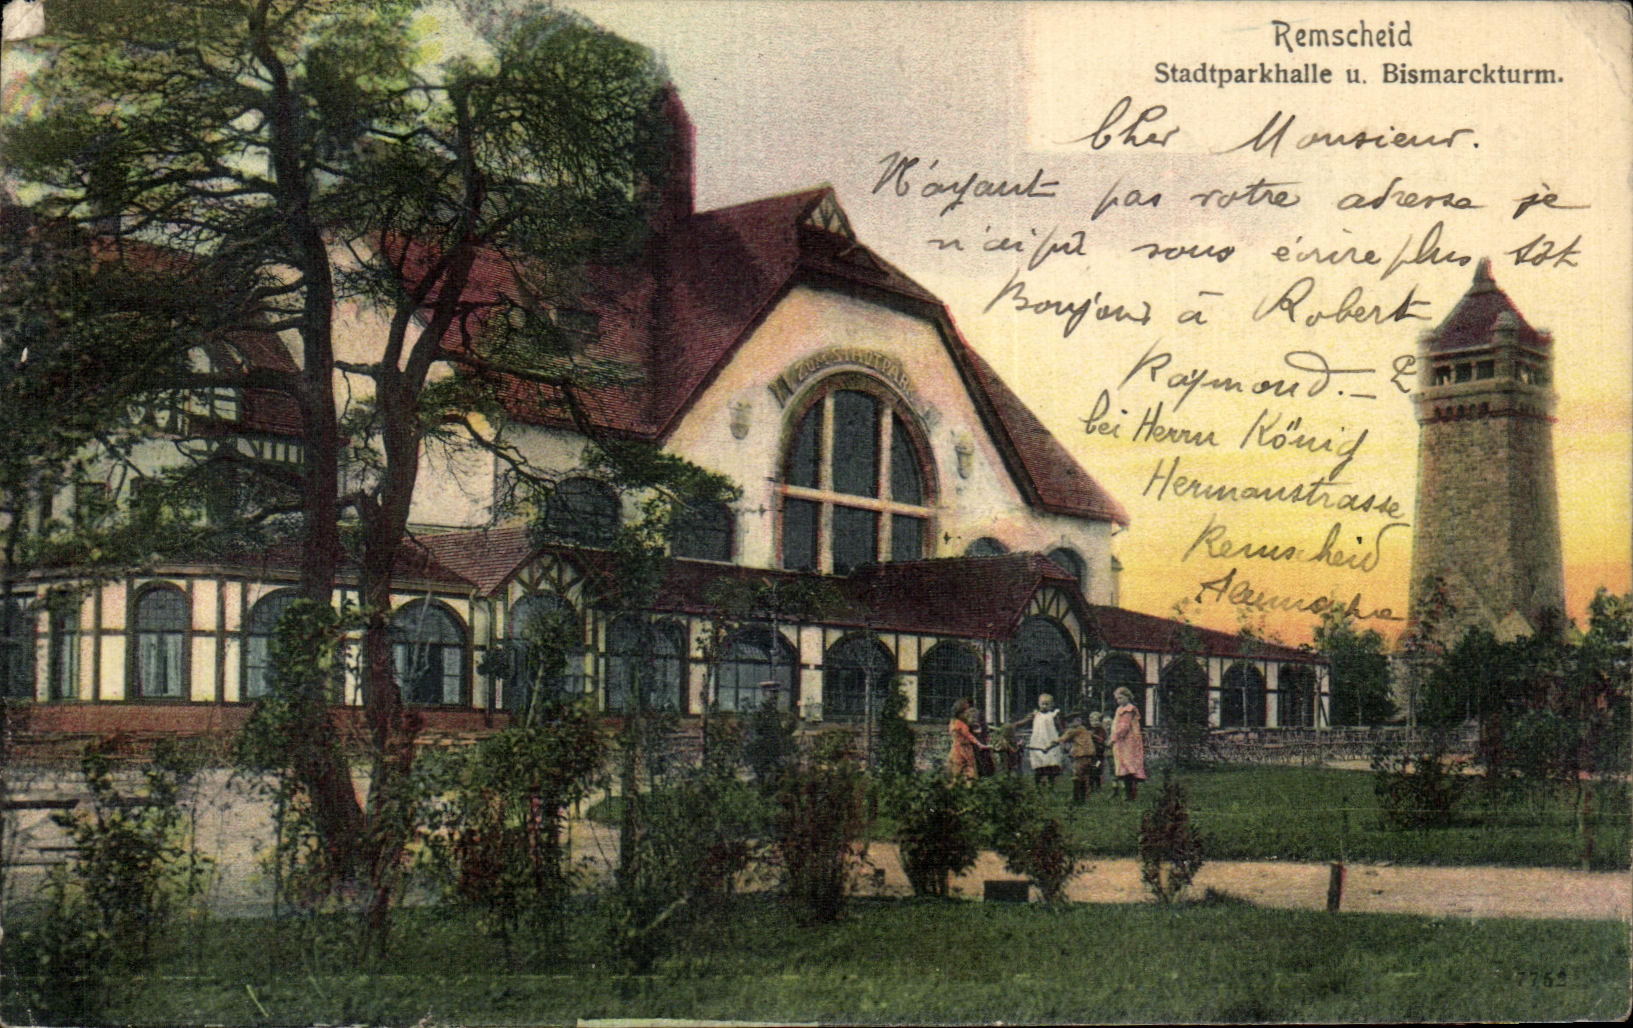 Remscheid
Stadtparkhalle u. Bismarckturm.
Cher Monsieur.
N'ayant pas votre adresse je
n'ai pû vous écrire plus tôt
Bonjour à Robert
Raymond. –
bei Herrn König
Hermanstrasse
Remscheid
ZUM STADTPARK
7762